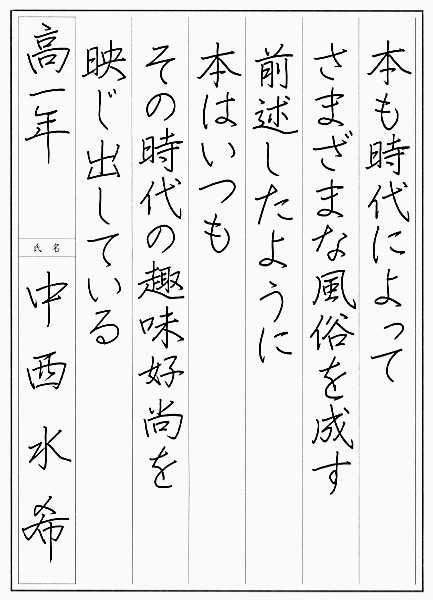 本も時代によって
さまざまな風俗を成す
前述したように
本はいつも
その時代の趣味好尚を
映じ出している
高一年
氏名
中西水希